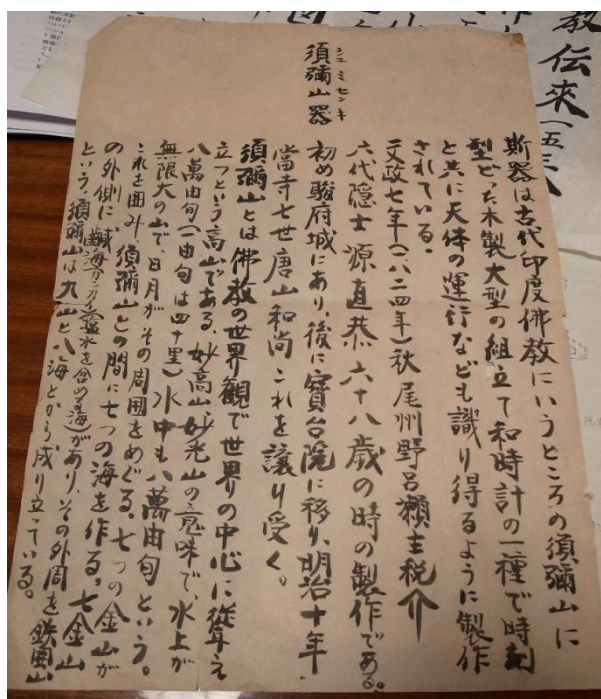 須彌山器
シュミセンキ
斯器は古代印度佛教にいうところの須彌山に
型どった木製大型の組立て和時計の一種で時刻
と共に天体の運行なども識り得るように製作
されている。
文政七年(一八二四年)秋 尾州野呂瀬主税介
六代隠士 源直恭 六十八歳の時の製作である。
初め駿府城にあり、後に寶台院に移り、明治十年、
當寺七世唐山和尚これを譲り受く。
須彌山とは佛教の世界観で世界の中心に聳え
立つという高山である、妙高山、妙光山の意味で、水上が
八萬由旬(一由旬は四十里)水中も八萬由旬という。
無限大の山で、日月がその周囲をめぐる。七つの金山が
これを囲み、須彌山との間に七つの海を作る。七金山
の外側に、鹹海(カンカイ)(塩水を含める海)があり、その外周を鉄囲山
という、須彌山は九山と八海とから成り立っている。
教伝来(五三八